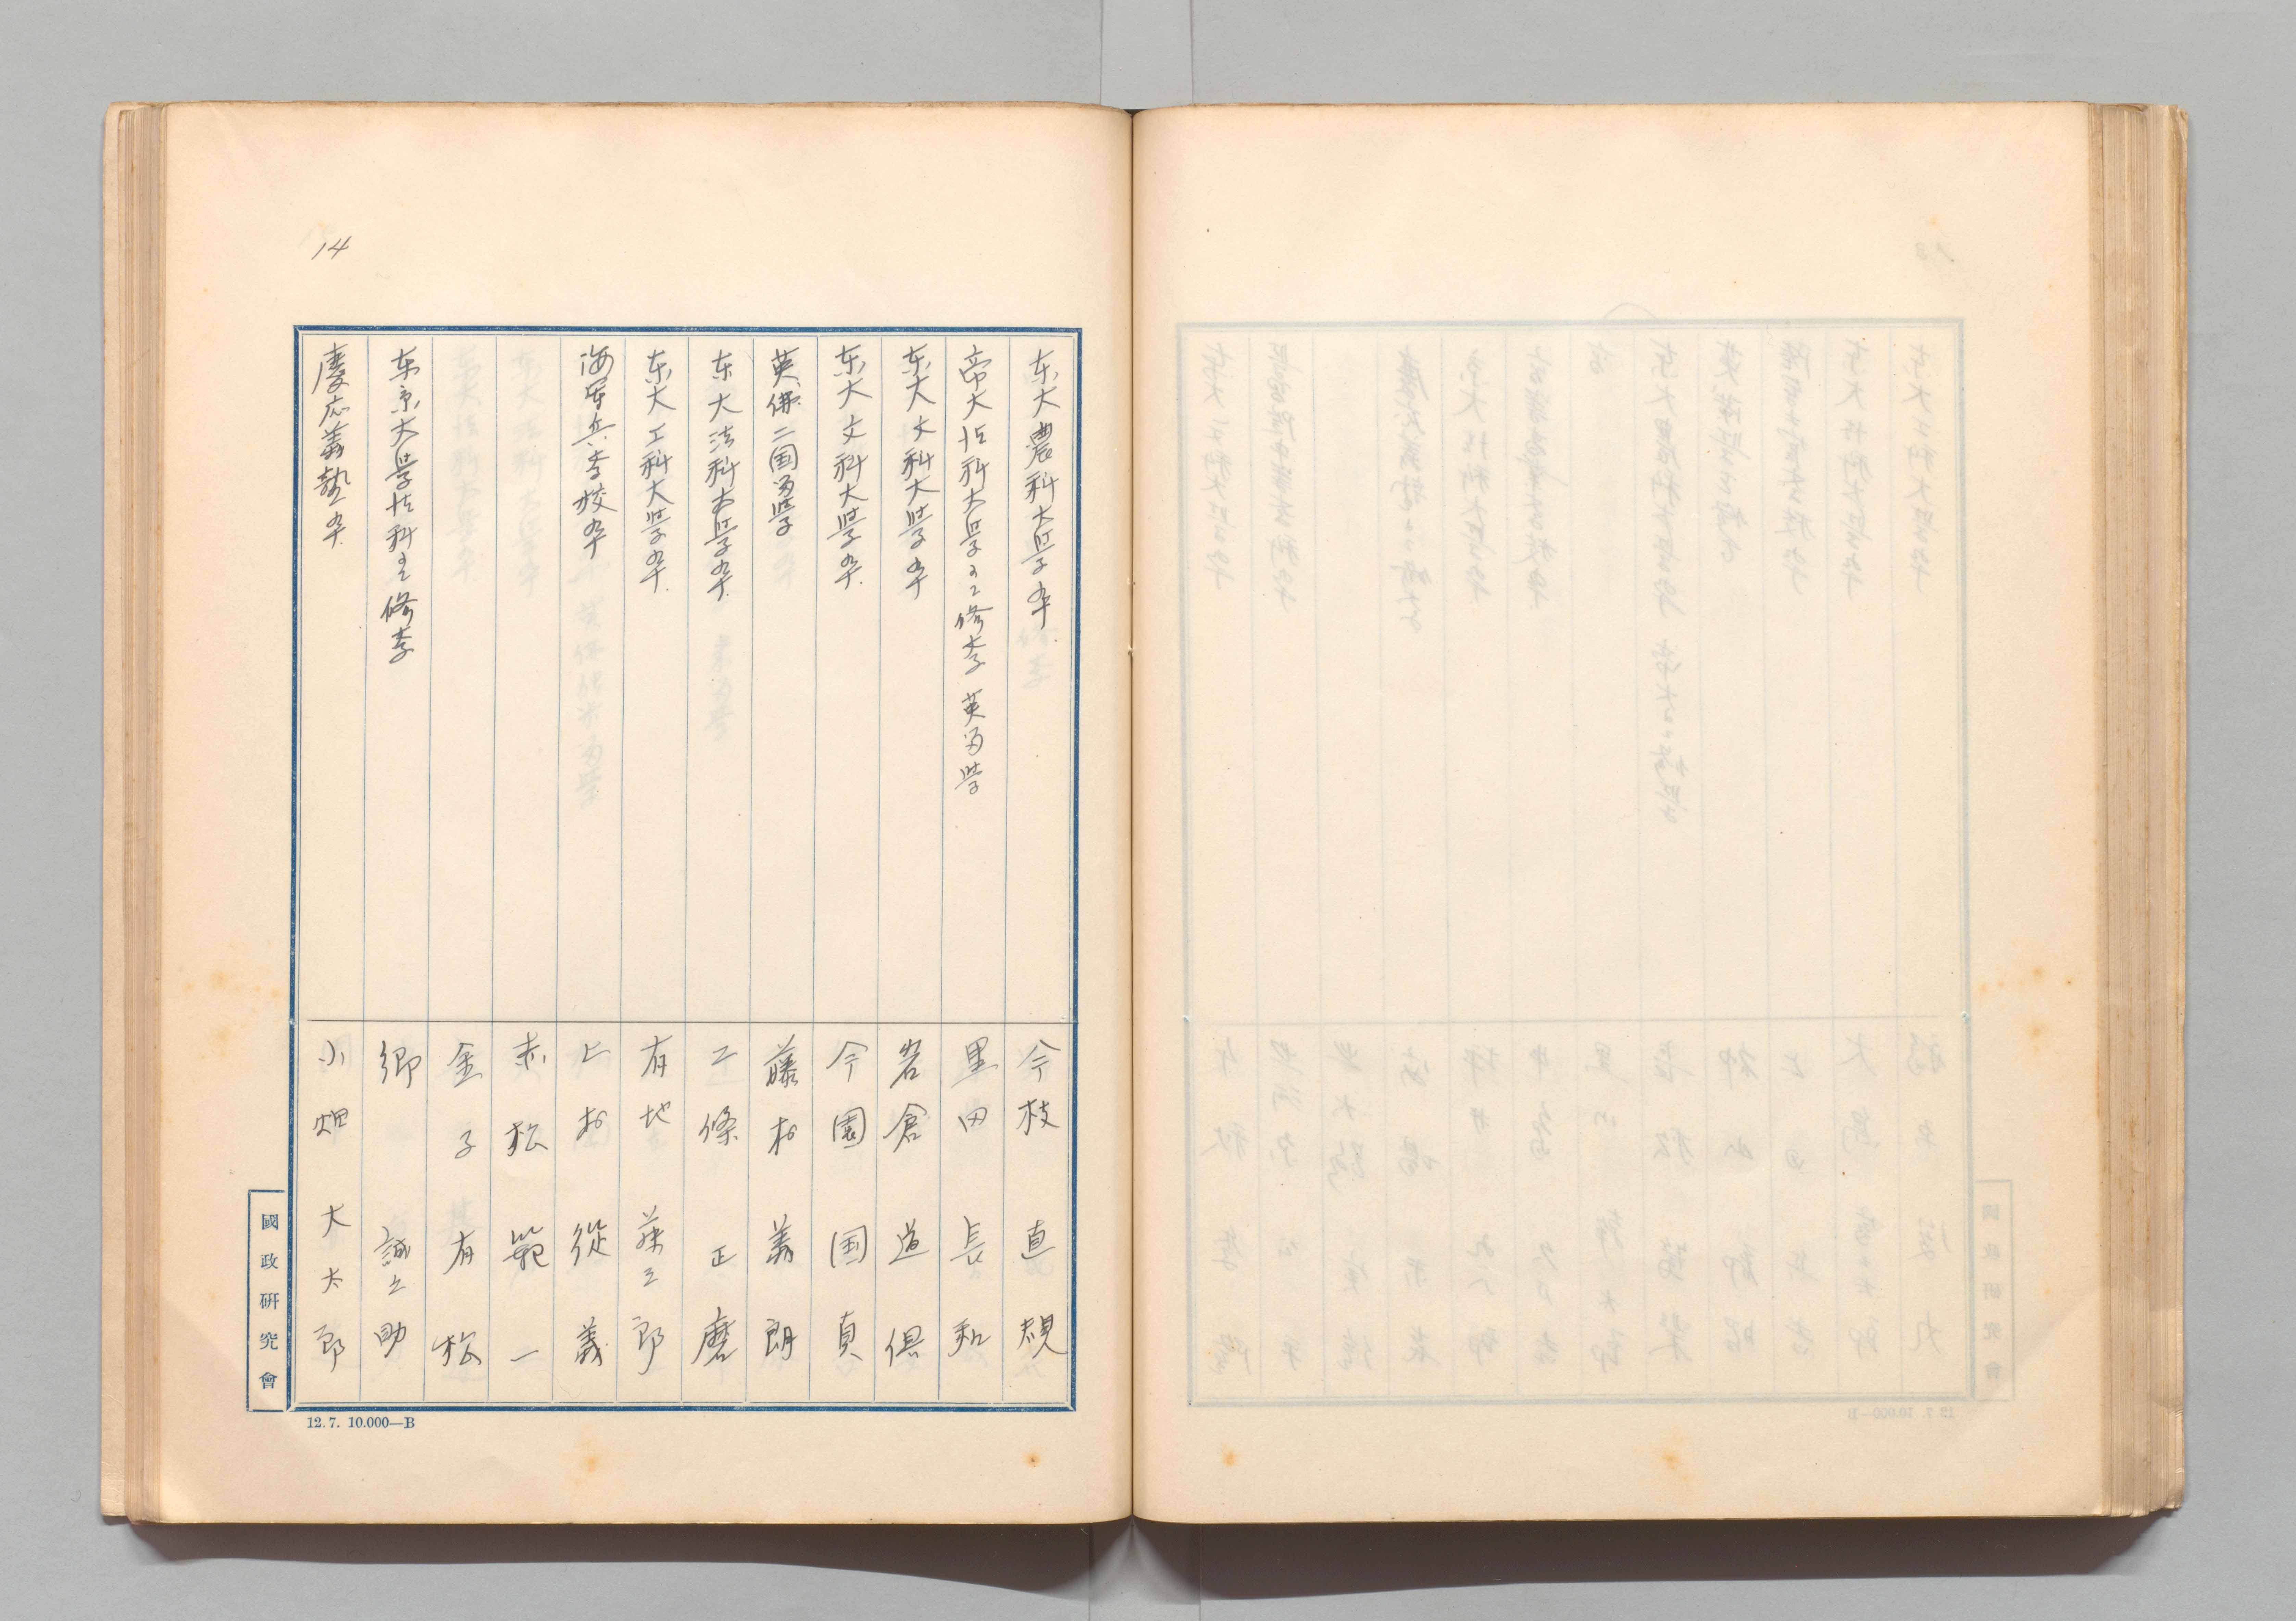 14
东大農科大学卒. 今枝直規
帝大法科大学ニ修李 英留学 黒田長和
东大文科大学卒 岩倉道倶
东大文科大学卒. 今園国貞
英佛二国留学 藤村義朗
东大法科大学卒. 二條正麿
东大工科大学卒. 有地藤三郎
海军兵学校卒 上村從義
赤松範一
金子有松
东京大学法科ニ修学 郷誠之助
慶应義塾卒. 小畑大太郎
國政研究會
12.7. 10.000—B